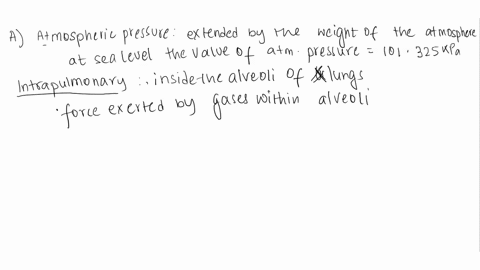 A) Atmospheric pressure: extended by the weight of the atmosphere
at sea level the value of atm. pressure = 101.325 kPa
Intrapulmonary :. inside the alveoli of lungs
. force exerted by gases within alveoli